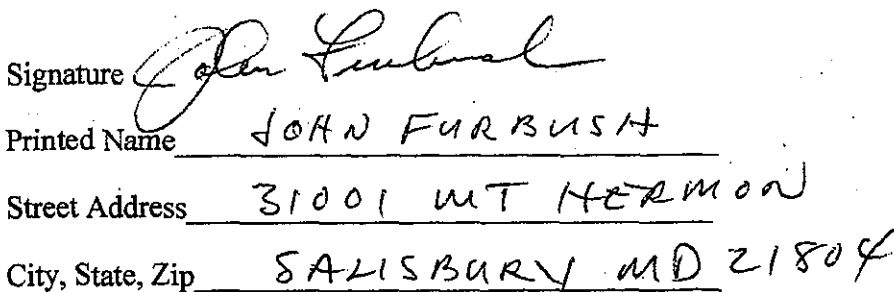 Signature John Furbush
Printed Name JOHN FURBUSH
Street Address 31001 MT HERMON
City, State, Zip SALISBURY MD 21804